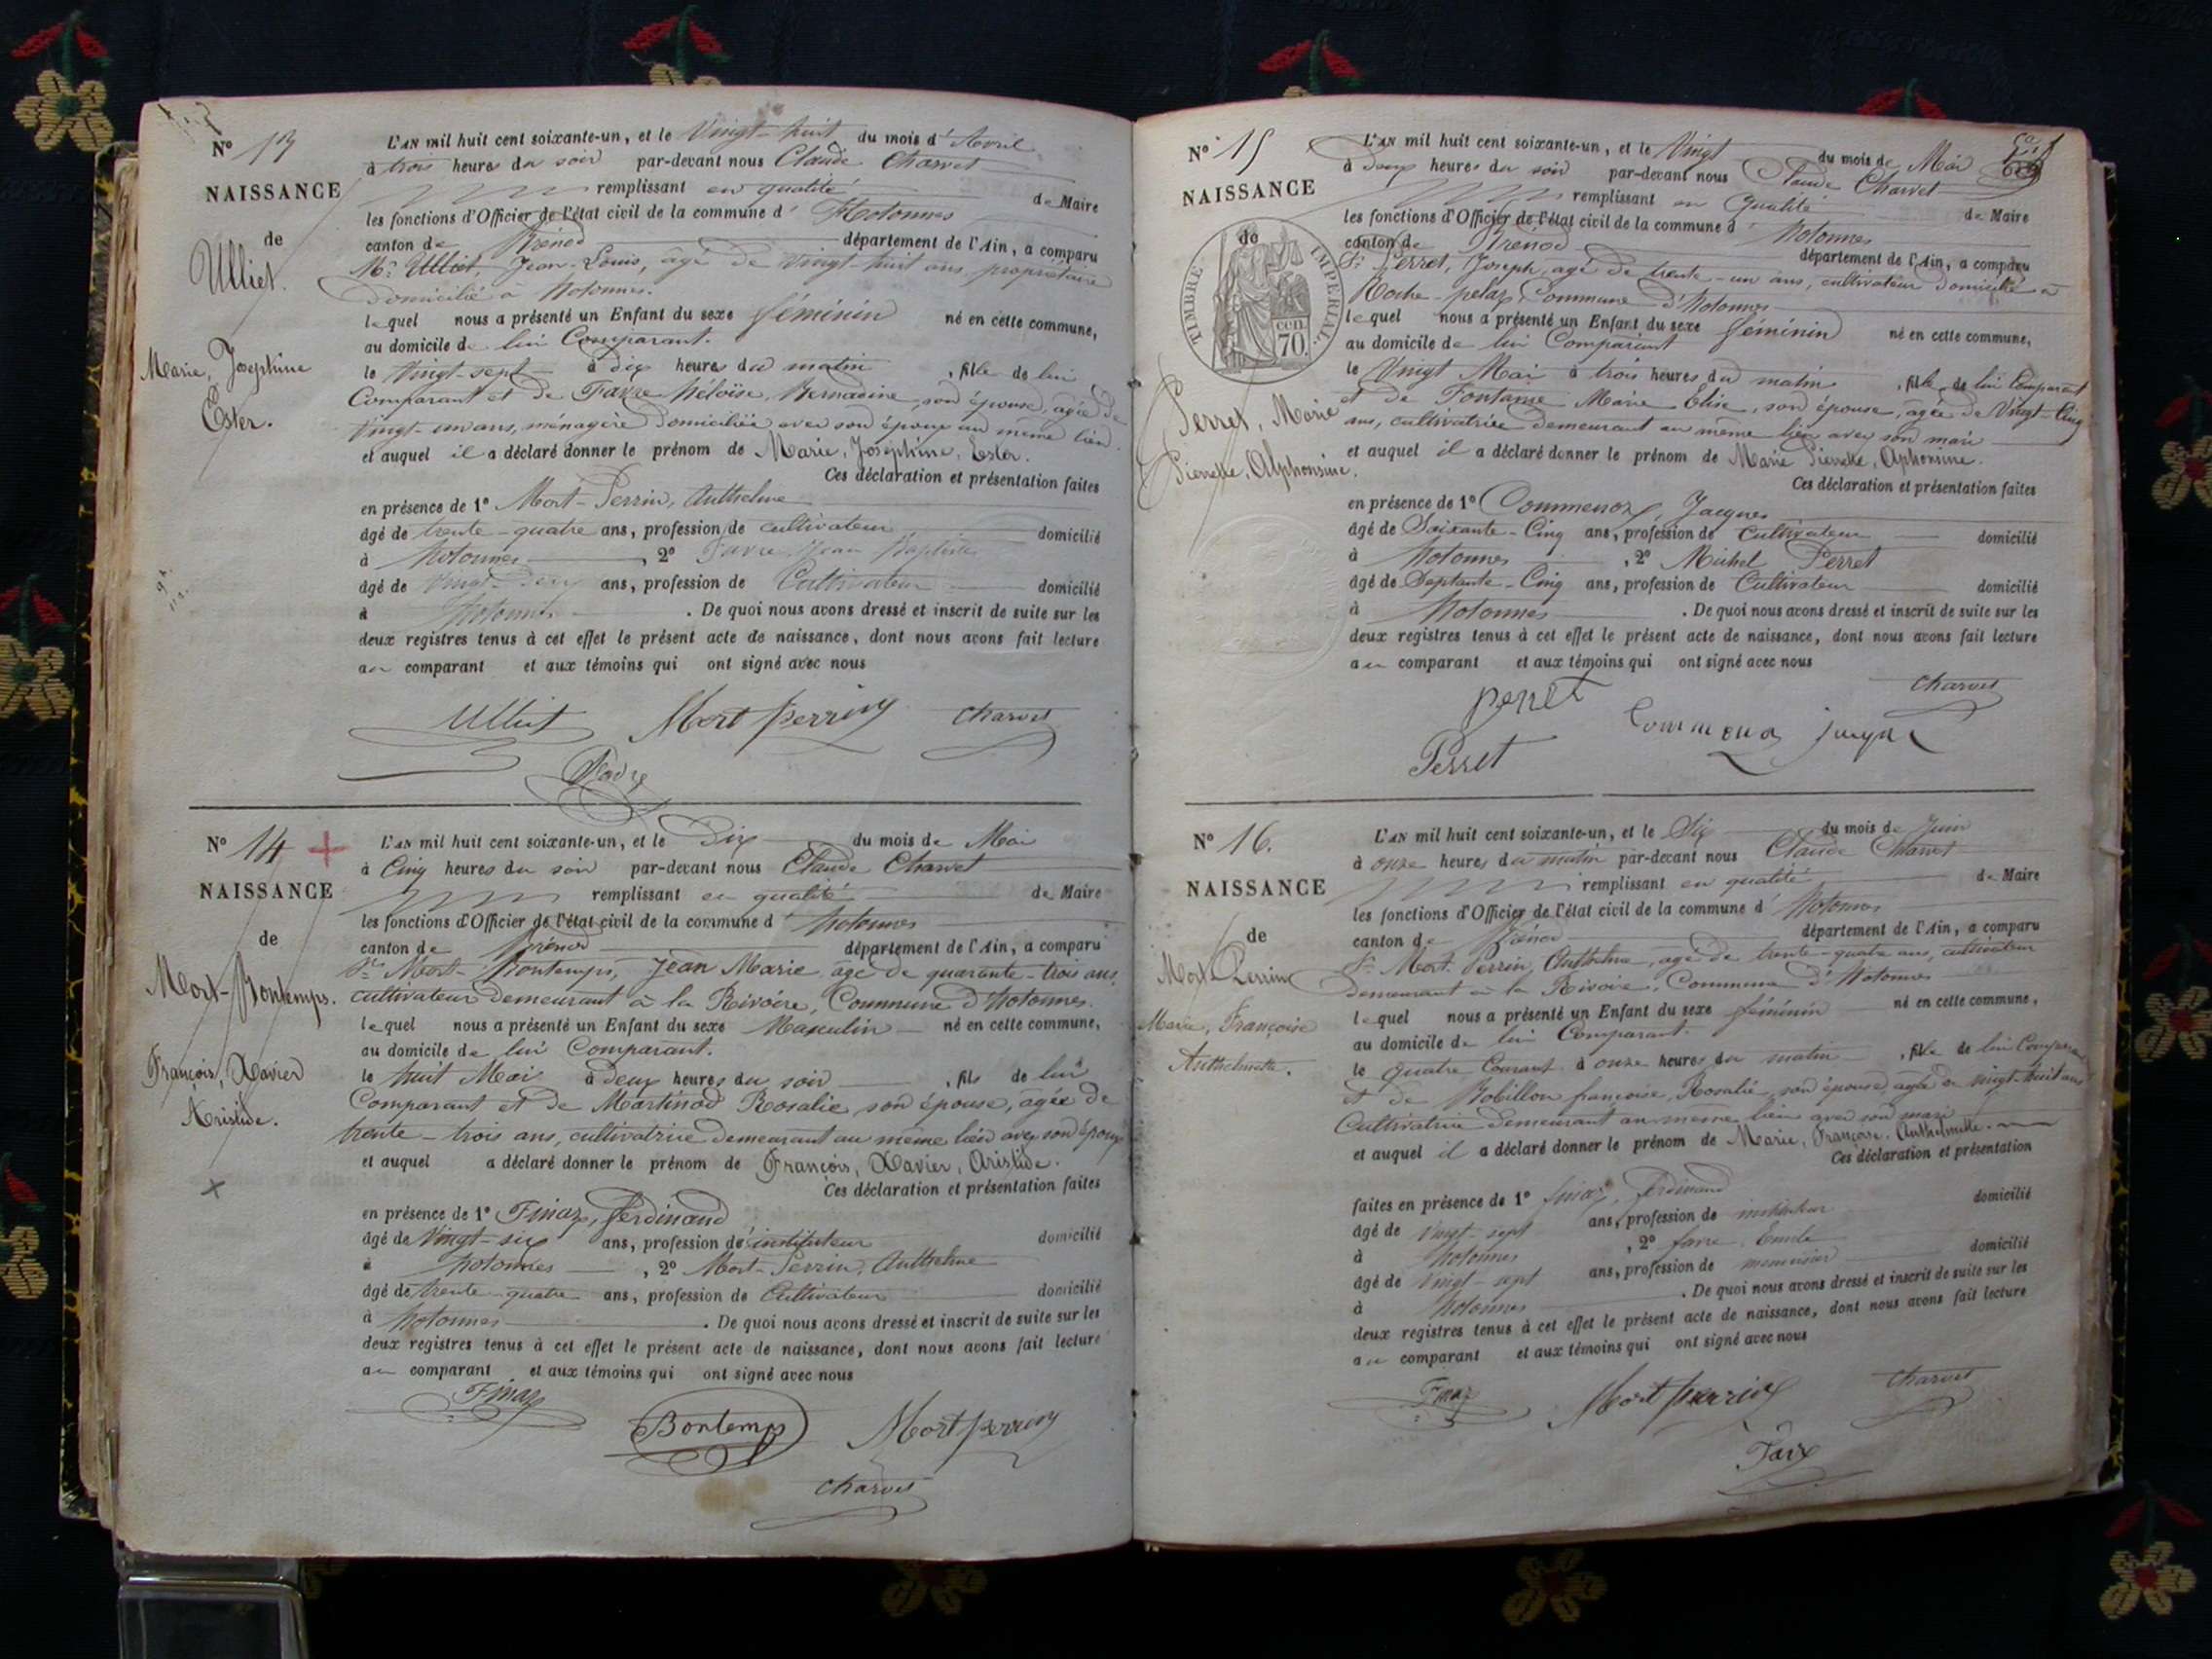 N° 13
NAISSANCE
de
Ulliet.
Marie, Josephine
Ester.
L'AN mil huit cent soixante-un, et le Vingt-huit du mois d'Avril
à trois heures du soir par-devant nous Claude Charvet
remplissant en qualité de Maire
les fonctions d'Officier de l'état civil de la commune d'Hotonnes
canton de Brénod département de l'Ain, a comparu
Mr Ulliet, Jean-Louis, âgé de vingt-huit ans, propriétaire
domicilié à Hotonnes.
lequel nous a présenté un Enfant du sexe féminin né en cette commune,
au domicile de lui Comparant.
le Vingt-sept à dix heures du matin, fille de lui
Comparant et de Favre Héloïse, Bernadine, son épouse, agée de
vingt-un ans, ménagère domiciliée avec son époux au même lieu
et auquel il a déclaré donner le prénom de Marie, Joséphine, Ester.
Ces déclaration et présentation faites
en présence de 1° Mort-Perrin, Anthelme
âgé de trente-quatre ans, profession de cultivateur domicilié
à Hotonnes, 2° Favre, Jean Baptiste
âgé de Vingt-Deux ans, profession de Cultivateur domicilié
à Hotonnes. De quoi nous avons dressé et inscrit de suite sur les
deux registres tenus à cet effet le présent acte de naissance, dont nous avons fait lecture
au comparant et aux témoins qui ont signé avec nous
Ulliet Mort perrin Charvet
Favre
N° 14
NAISSANCE
de
Mort-Bontemps.
François, Xavier
Aristide.
L'AN mil huit cent soixante-un, et le Dix du mois de Mai
à Cinq heures du soir par-devant nous Claude Charvet
remplissant en qualité de Maire
les fonctions d'Officier de l'état civil de la commune d'Hotonnes
canton de Brénod département de l'Ain, a comparu
Sr Mort-Bontemps, Jean Marie, âgé de quarante-trois ans,
cultivateur demeurant à la Rivoire, Commune d'Hotonnes.
lequel nous a présenté un Enfant du sexe Masculin né en cette commune,
au domicile de lui Comparant.
le huit Mai à deux heures du soir, fils de lui
Comparant et de Martinod Rosalie, son épouse, agée de
trente-trois ans, cultivatrice demeurant au même lieu avec son époux
et auquel a déclaré donner le prénom de François, Xavier, Aristide.
Ces déclaration et présentation faites
en présence de 1° Finaz, Ferdinand
âgé de Vingt-six ans, profession de instituteur domicilié
à Hotonnes, 2° Mort-Perrin, Anthelme
âgé de trente-quatre ans, profession de Cultivateur domicilié
à Hotonnes. De quoi nous avons dressé et inscrit de suite sur les
deux registres tenus à cet effet le présent acte de naissance, dont nous avons fait lecture
au comparant et aux témoins qui ont signé avec nous
Finaz
Bontemps Mort perrin
Charvet
N° 15
NAISSANCE
de
TIMBRE IMPERIAL.
cen. 70.
Perret, Marie
Pierrette, Alphonsine.
L'AN mil huit cent soixante-un, et le Vingt du mois de Mai
à deux heures du soir par-devant nous Claude Charvet
remplissant en qualité de Maire
les fonctions d'Officier de l'état civil de la commune d'Hotonnes
canton de Brénod département de l'Ain, a comparu
Sr Perret, Joseph, agé de trente-un ans, cultivateur domicilié à
Roche-pelaz, Commune d'Hotonnes
lequel nous a présenté un Enfant du sexe féminin né en cette commune,
au domicile de lui Comparant
le Vingt Mai à trois heures du matin, fille de lui Comparant
et de Fontaine Marie Elise, son épouse, agée de Vingt-Cinq
ans, cultivatrice demeurant au même lieu avec son mari
et auquel il a déclaré donner le prénom de Marie Pierrette, Alphonsine.
Ces déclaration et présentation faites
en présence de 1° Commenoz, Jacques
âgé de Soixante-Cinq ans, profession de Cultivateur domicilié
à Hotonnes, 2° Michel Perret
âgé de Septante-Cinq ans, profession de Cultivateur domicilié
à Hotonnes. De quoi nous avons dressé et inscrit de suite sur les
deux registres tenus à cet effet le présent acte de naissance, dont nous avons fait lecture
au comparant et aux témoins qui ont signé avec nous
Charvet
perret
Perret
N° 16.
NAISSANCE
de
Mort-Perrin
Marie, Françoise
Anthelmette.
L'AN mil huit cent soixante-un, et le Six du mois de Juin
à onze heures du matin par-devant nous Claude Charvet
remplissant en qualité de Maire
les fonctions d'Officier de l'état civil de la commune d'Hotonnes
canton de Brénod département de l'Ain, a comparu
Sr Mort-Perrin, Anthelme, agé de trente-quatre ans, cultivateur
demeurant à la Rivoire, Commune d'Hotonnes
lequel nous a présenté un Enfant du sexe féminin né en cette commune,
au domicile de lui Comparant.
le quatre Courant à onze heures du matin, fille de lui Comparant
et de Robillon françoise, Rosalie, son épouse, agée de vingt-huit ans
Cultivatrice demeurant au même lieu avec son mari
et auquel il a déclaré donner le prénom de Marie, Françoise, Anthelmette.
Ces déclaration et présentation
faites en présence de 1° finaz, ferdinand domicilié
âgé de vingt-sept ans, profession de instituteur
à Hotonnes, 2° favre, Emile
âgé de Vingt-sept ans, profession de menuisier domicilié
à Hotonnes. De quoi nous avons dressé et inscrit de suite sur les
deux registres tenus à cet effet le présent acte de naissance, dont nous avons fait lecture
au comparant et aux témoins qui ont signé avec nous
Finaz Mort perrin Charvet